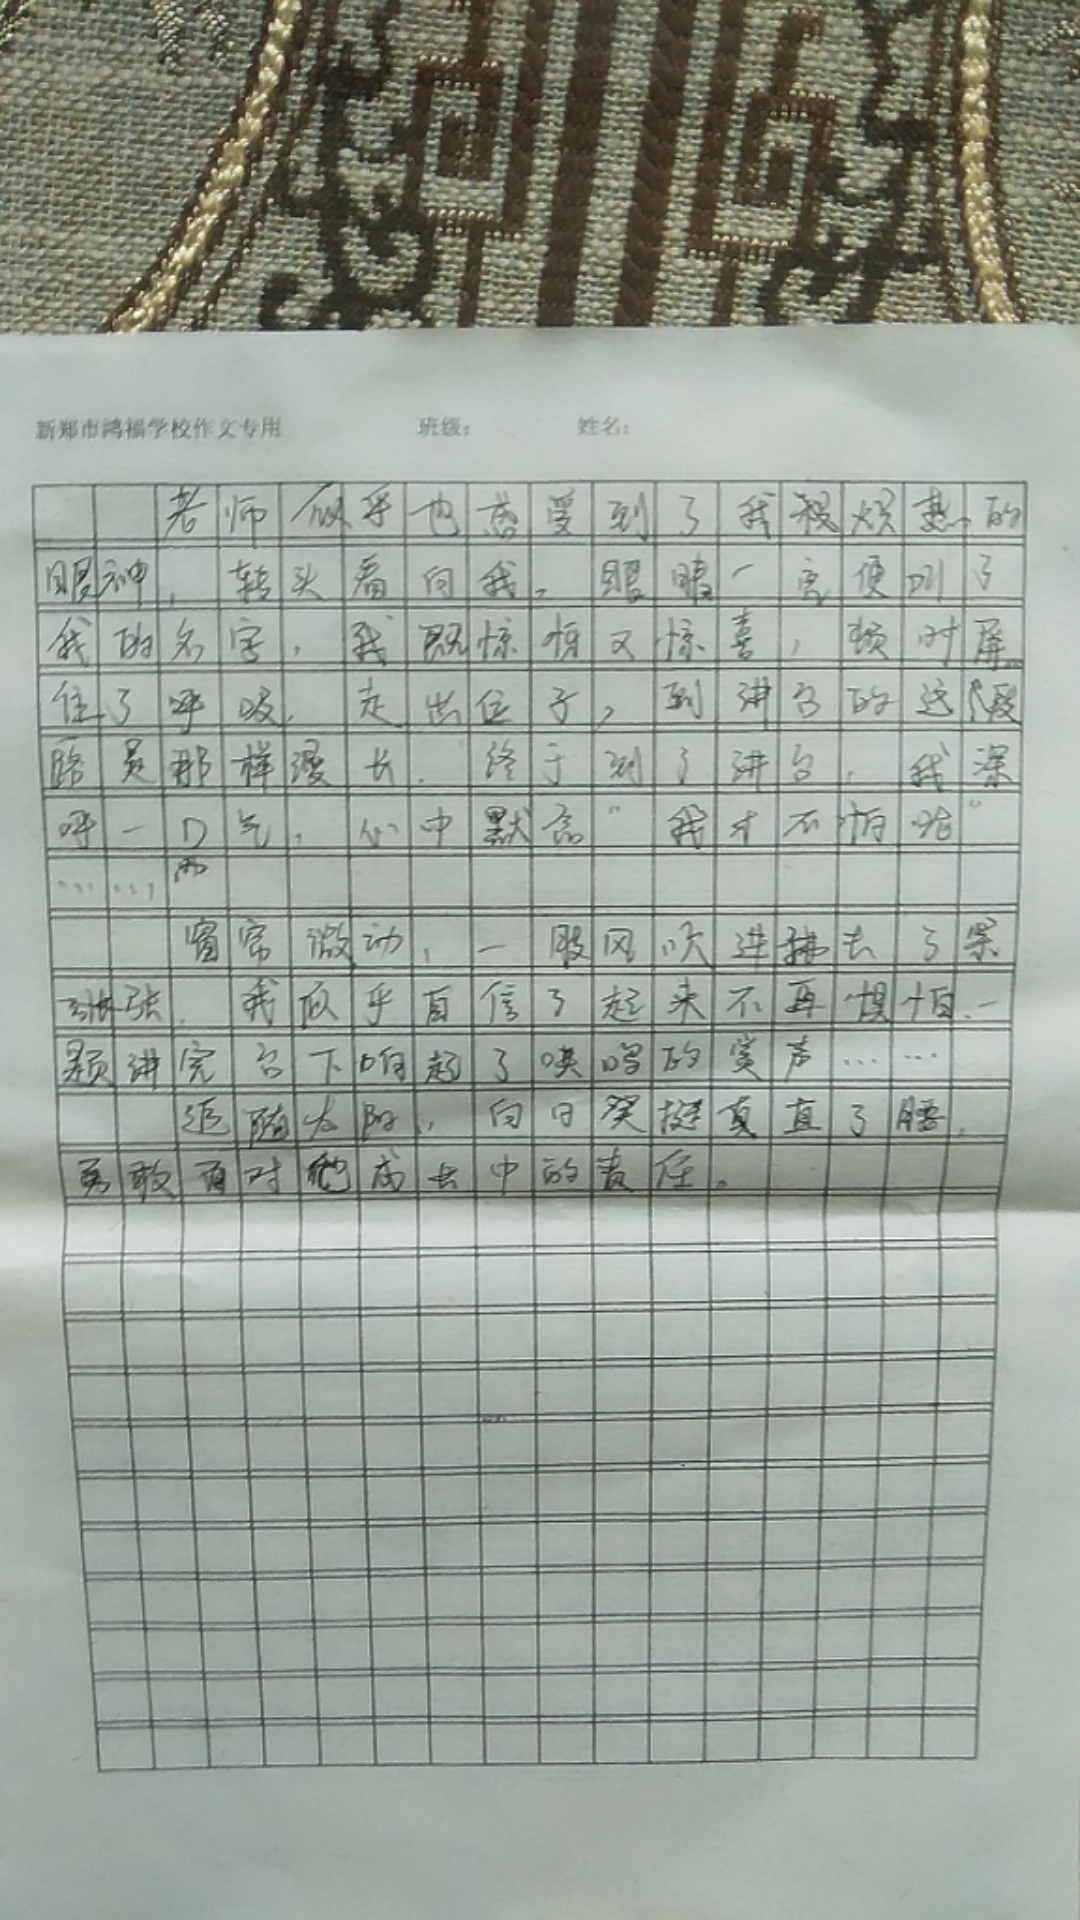 新郑市鸿福学校作文专用 班级: 姓名:
老师似乎也感受到了我 的
眼神，转头看向我。眼睛一亮便叫了
我的名字，我既惊怕又惊喜，顿时屏
住了呼吸，走出位子，到讲台的这段
路是那样漫长，终于到了讲台，我深
呼一口气，心中默念“我才不怕呢”
……
窗帘微动，一股风吹进拂去了
张，我似乎自信了起来不再惧怕，一
讲完台下响起了 的笑声……
追随太阳，向日葵挺直了腰，
勇敢面对 成长中的责任。